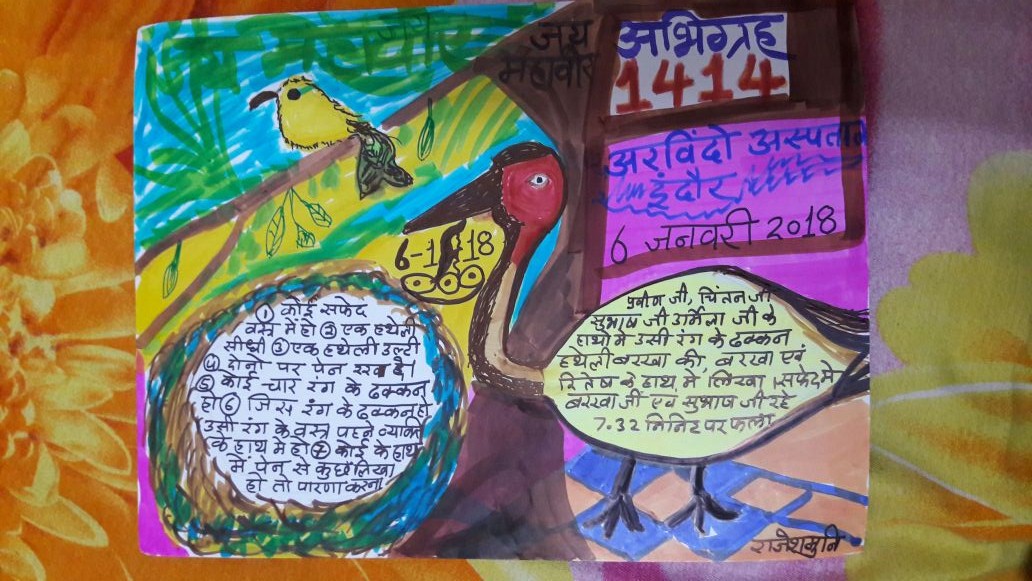 जय महावीर
जय
महावीर
अभिग्रह
1414
अरविंदो अस्पताल
इंदौर
6 जनवरी 2018
6-1-18
① कोई सफेद
वस्त्र में हो ② एक हथेली
सीधी ③ एक हथेली उल्टी
④ दोनो पर पेन रखा है।
⑤ कोई चार रंग के ढक्कन
हो ⑥ जिस रंग के ढक्कन हो
उसी रंग के वस्त्र पहने व्यक्ति
के हाथ मे हो ⑦ कोई के हाथ
में पेन से कुछ लिखा
हो तो पारणा करना
प्रवीण जी, चिंतन जी
सुभाष जी उर्मिला जी के
हाथो मे उसी रंग के ढक्कन
हथेली बरखा की, बरखा एवं
रितेश के हाथ मे लिखा। सफेद मे
बरखा जी एवं सुभाष जी रहे
7.32 मिनिट पर फला
राजेशमुनि